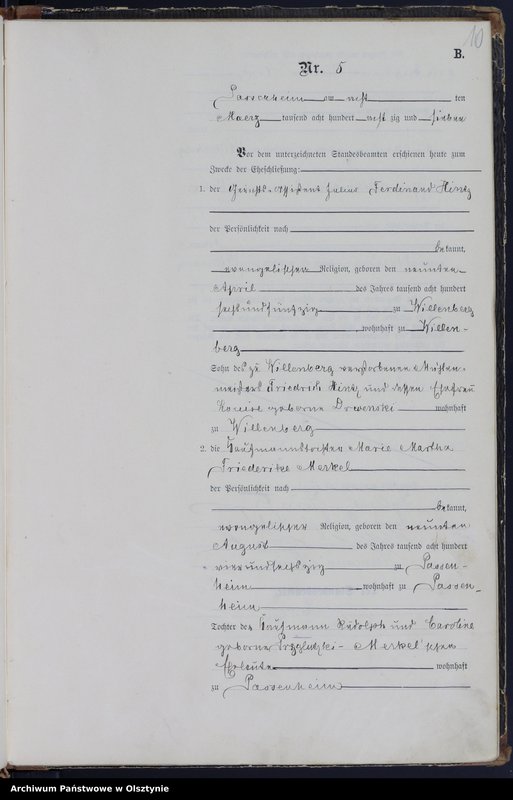 10
B.
Nr. 5
Passenheim am acht ten
Maerz tausend acht hundert acht zig und sieben
Vor dem unterzeichneten Standesbeamten erschienen heute zum
Zwecke der Eheschließung:
1. der Gerichts-Assistent Julius Ferdinand Hintz
der Persönlichkeit nach
bekannt,
evangelischer Religion, geboren den neunten
April des Jahres tausend acht hundert
sechsundfünfzig zu Willenberg
, wohnhaft zu Willen-
berg
Sohn des zu Willenberg verstorbenen Mühlen-
meisters Friedrich Hintz und dessen Ehefrau
Louise geborene Drwenski wohnhaft
zu Willenberg
2. die Kaufmannstochter Marie Martha
Friederike Merkel
der Persönlichkeit nach
bekannt,
evangelischer Religion, geboren den neunten
August des Jahres tausend acht hundert
vierundsechszig zu Passen-
heim wohnhaft zu Passen-
heim
Tochter des Kaufmann Rudolph und Caroline
geborene Merkel'schen
Eheleute wohnhaft
zu Passenheim
Archiwum Państwowe w Olsztynie